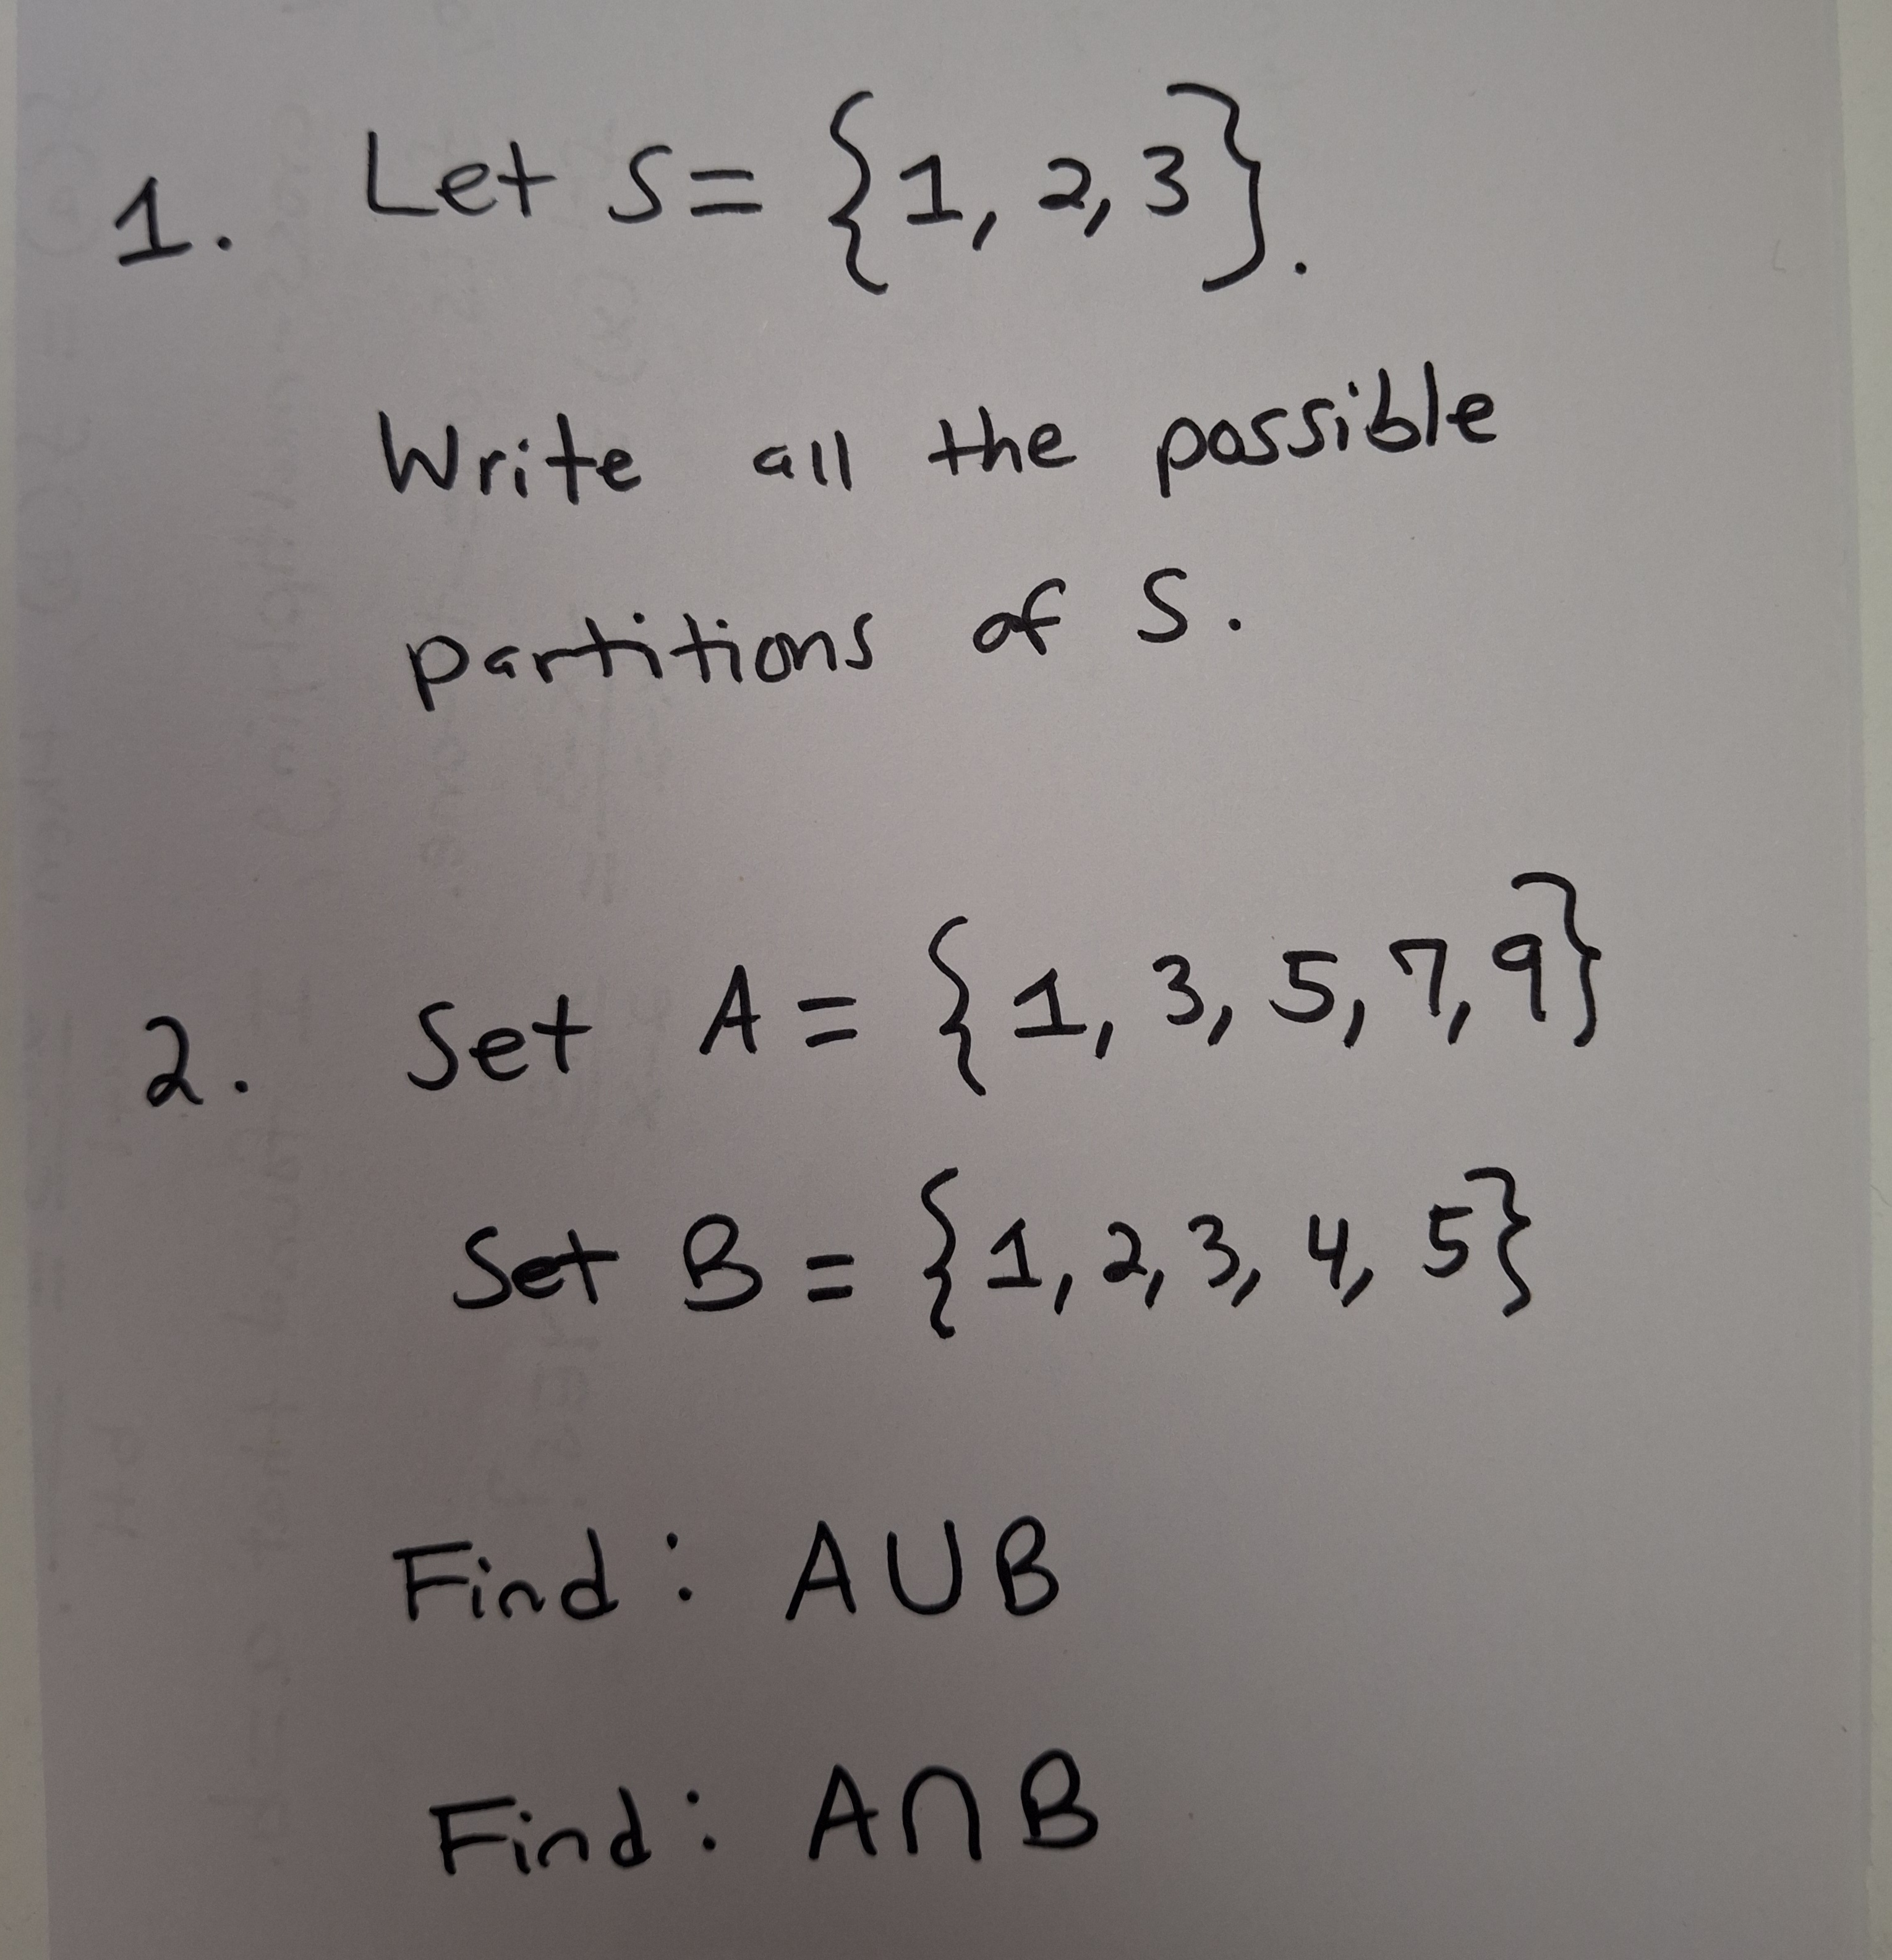 1. Let S = {1, 2, 3}.
Write all the possible
partitions of S.
2. Set A = {1, 3, 5, 7, 9}
Set B = {1, 2, 3, 4, 5}
Find: A∪B
Find: A∩B